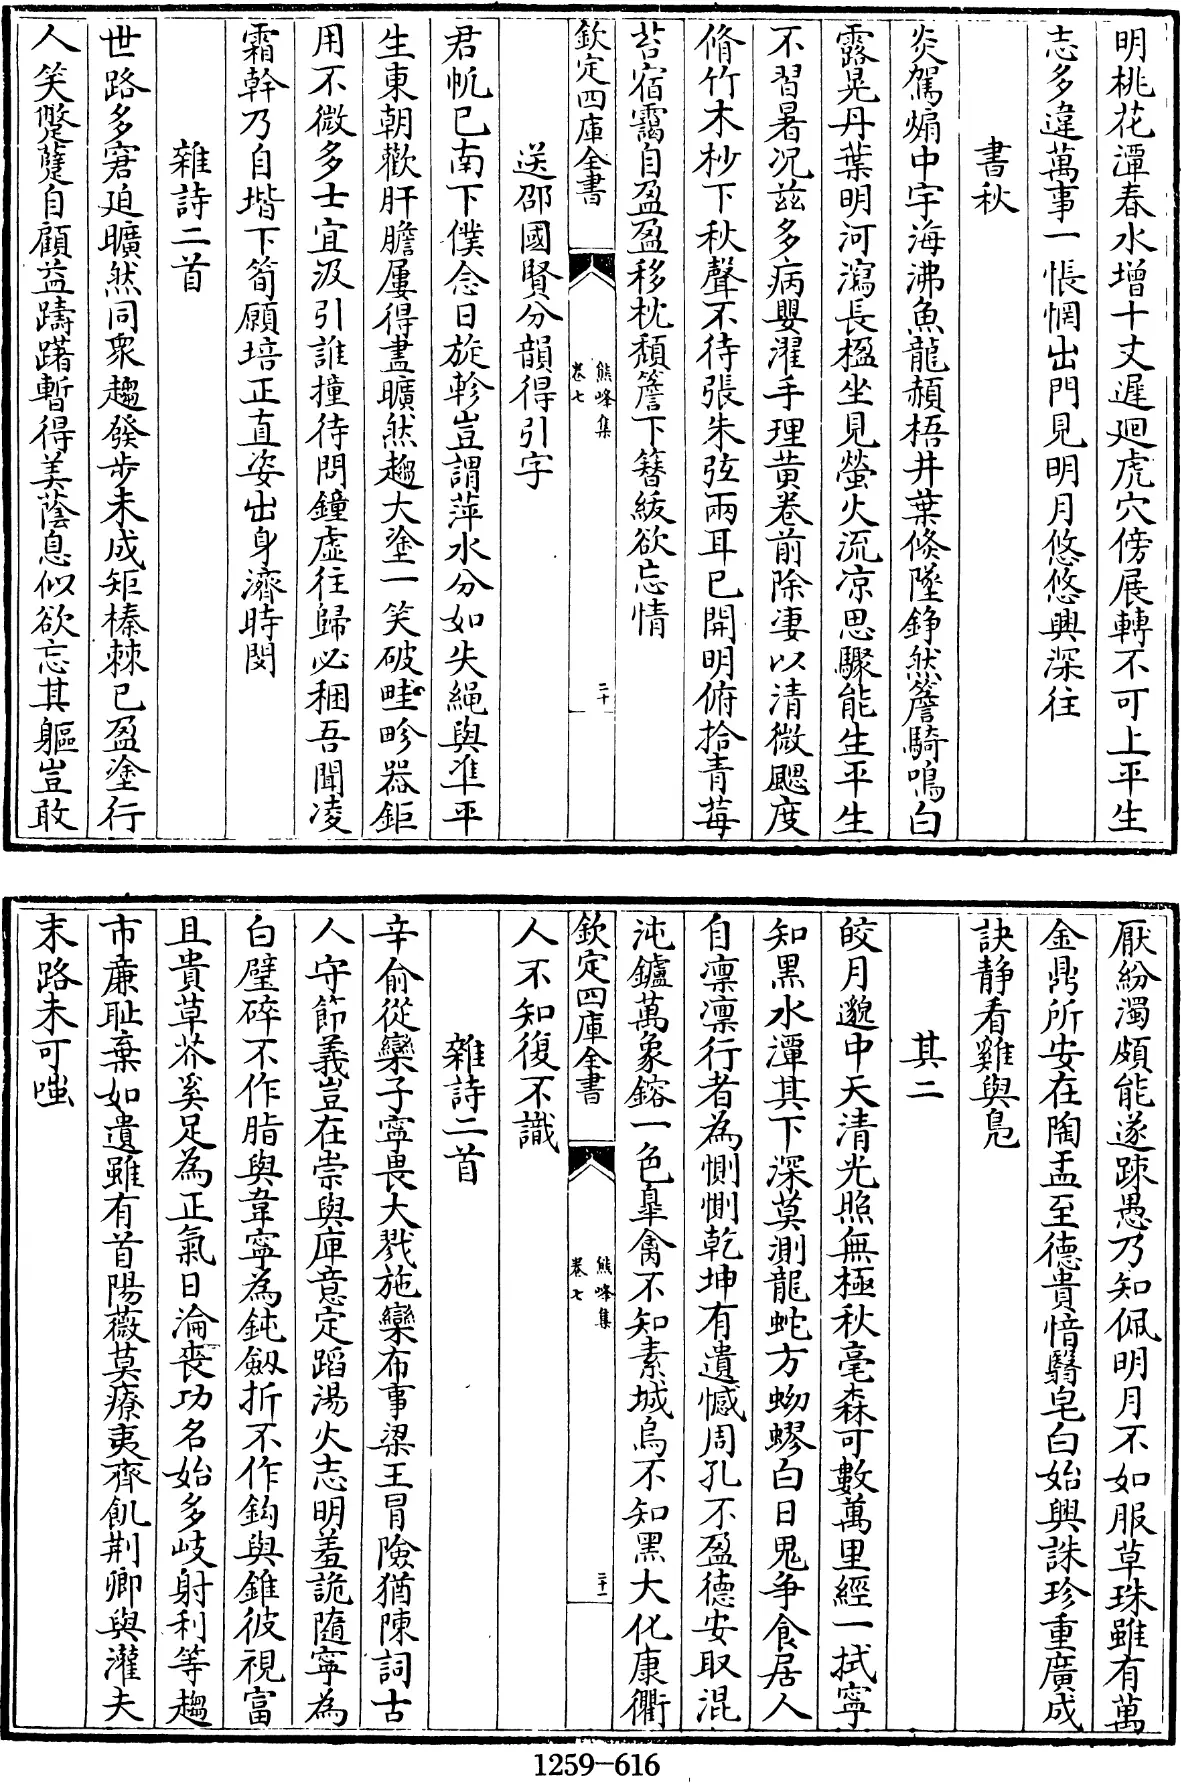 明桃花潭春水增十丈遲廻虎穴傍展轉不可上平生
志多違萬事一悵惘出門見明月悠悠興深往
書秋
炎駕煽中宇海沸魚龍頳梧井葉倐墜錚然簷騎鳴白
露晃丹葉明河瀉長楹坐見螢火流凉思驟能生平生
不習暑况兹多病嬰濯手理黄卷前除凄以清微颸度
脩竹木杪下秋聲不待張朱弦兩耳已開明俯拾青莓
苔宿靄自盈盈移枕頽簷下簮紱欲忘情
欽定四庫全書
熊峰集
卷七
二十
送邵國賢分韻得引字
君帆已南下僕念日旋軫豈謂萍水分如失繩與准平
生東朝歡肝膽屢得盡曠然趨大塗一笑破畦畛器鉅
用不微多士宜汲引誰撞待問鐘虚往歸必稇吾聞凌
霜幹乃自堦下筍願培正直姿出身濟時閔
雜詩二首
世路多窘廹曠然同衆趨發步未成矩榛棘已盈塗行
人笑蹩躠自顧益躊躇暫得美蔭息似欲忘其軀豈敢
厭紛濁頗能遂踈愚乃知佩明月不如服草珠雖有萬
金鼎所安在陶盂至德貴愔翳皂白始興誅珍重廣成
訣静看雞與鳬
其二
皎月邈中天清光照無極秋毫森可數萬里經一拭寧
知黑水潭其下深莫測龍蛇方蚴蟉白日鬼争食居人
自凛凛行者為惻惻乾坤有遺憾周孔不盈德安取混
沌鑪萬象鎔一色臯禽不知素城烏不知黑大化康衢
欽定四庫全書
熊峰集
卷七
二十一
人不知復不識
雜詩二首
辛俞從欒子寧畏大戮施欒布事梁王冒險猶陳詞古
人守節義豈在崇與庳意定蹈湯火志明羞詭隨寧為
白璧碎不作脂與韋寧為鈍劔折不作鈎與錐彼視富
且貴草芥奚足為正氣日淪喪功名始多岐射利等趨
市亷耻棄如遺雖有首陽薇莫療夷齊飢荆卿與灌夫
末路未可嗤
1259-616